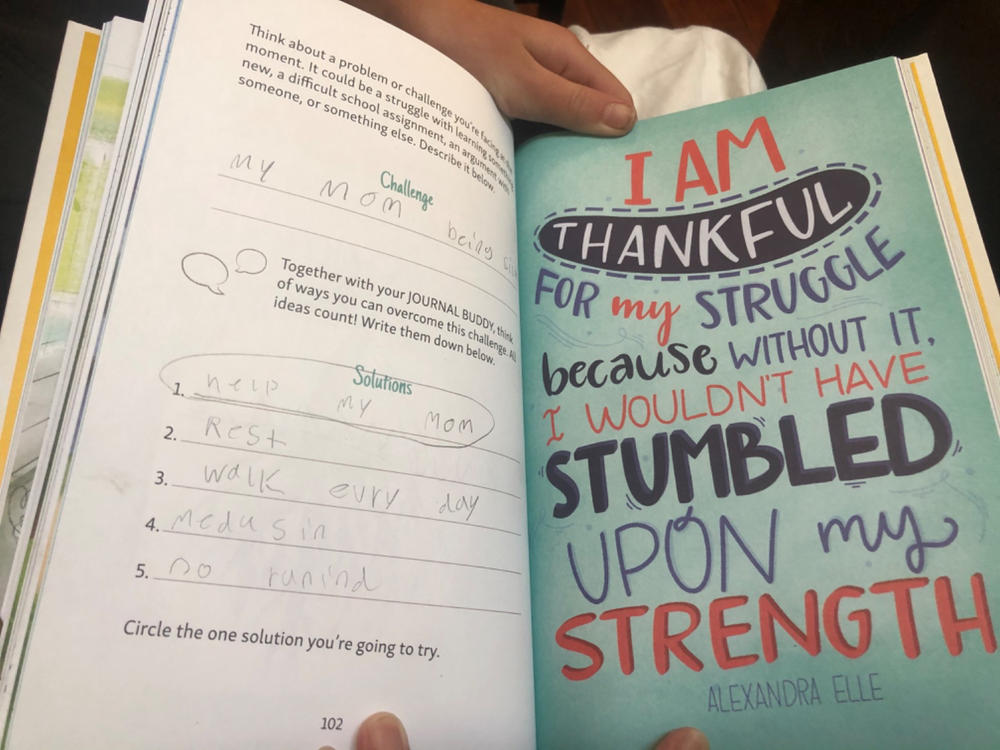 Think about a problem or challenge you're facing at the
moment. It could be a struggle with learning something
new, a difficult school assignment, an argument with
someone, or something else. Describe it below.
Challenge
my mom being
Together with your JOURNAL BUDDY, think
of ways you can overcome this challenge. All
ideas count! Write them down below.
Solutions
1. help my mom
2. Rest
3. walk evry day
4. medusin
5. no
Circle the one solution you're going to try.
102
I AM
THANKFUL
FOR my STRUGGLE
because WITHOUT IT,
I WOULDN'T HAVE
STUMBLED
UPON my
STRENGTH
ALEXANDRA ELLE